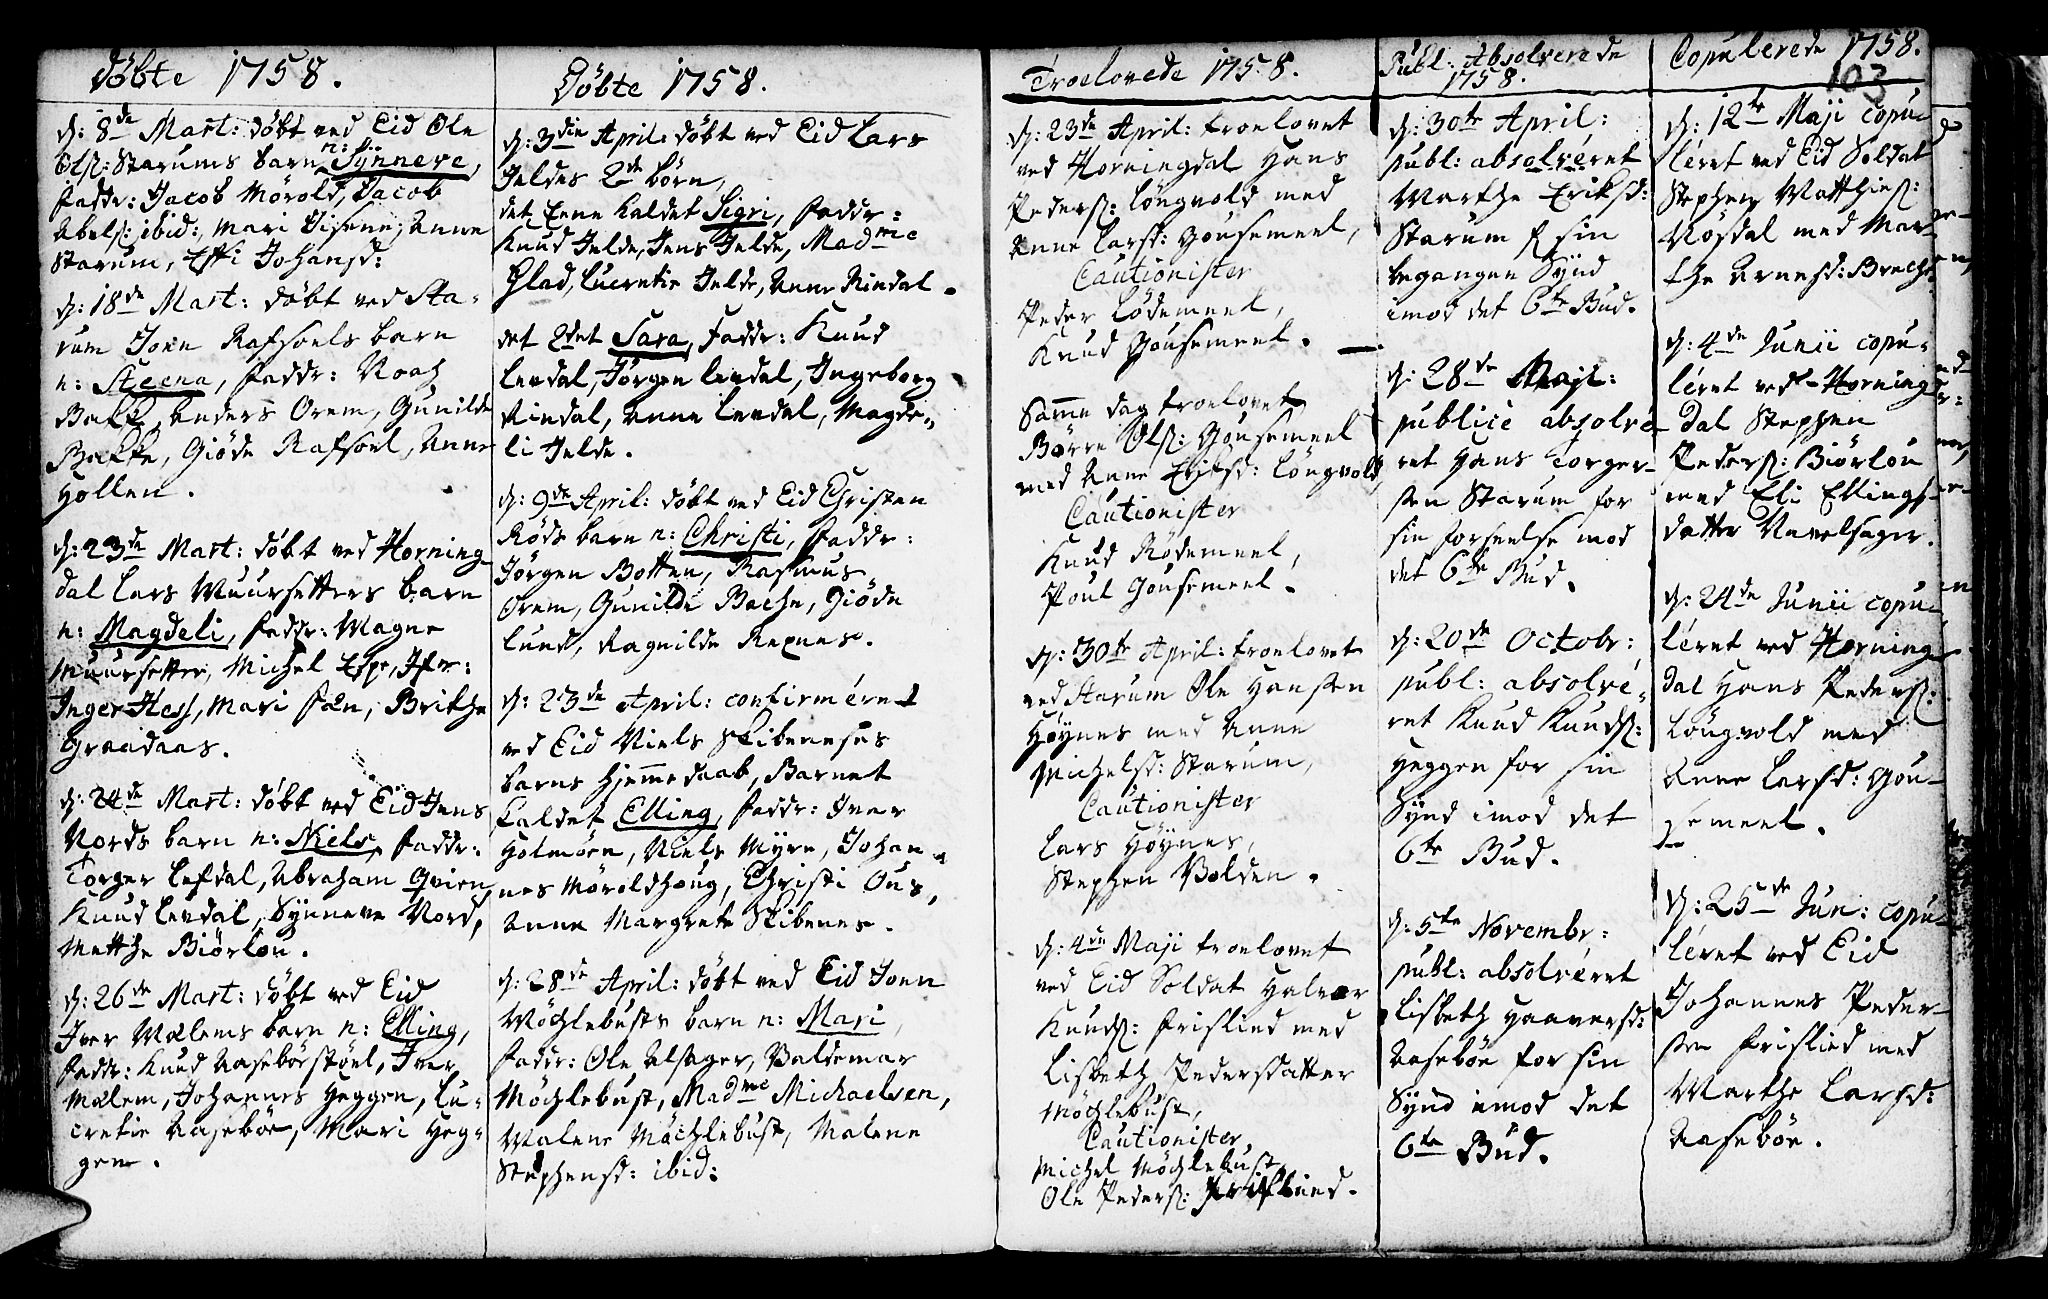 Döbte 1758.
d: 8de Mart: döbt ved Eid Ole
Ols: Starums barn n: Synneve,
faddr: Jacob Mörold, Jacob
Abels: ibid:, Mari Anne
Starum, Johansd:
d: 18de Mart: döbt ved Sta-
rum Joen Rafsoels barn
n: Steena, faddr: Noach
Bakke, Anders Orem, Gunilde
Bakke, Giöde Rafsoel, Anne
Hollen.
d: 23de Mart: döbt ved Horning-
dal Lars Muursetters barn
n: Magdeli, faddr: Magne
Muursetter, Michel Espe, Ifer:
Inger Hess, Mari Brithe
Graadaas.
d: 24de Mart: döbt ved Eid Jens
Nords barn n: Niels, faddr:
Torger Lefdal, Abraham Qvien,
Knud Levdal, Synneve Nord,
Mette Biörlou.
d: 26de Mart: döbt ved Eid
Iver Mælems barn n: Elling,
faddr: Knud Aaseböestöel, Iver
Mælem, Johannes Heggen, Lu-
cretie Aaseböe, Mari Heg-
gen.
Döbte 1758.
d: 3die April: döbt ved Eid Lars
Ieldes 2de börn,
det Eene kaldet Sigri, faddr:
Knud Ielde, Jens Ielde, Madme
Glad, Lucretie Ielde, Anne Rindal.
det 2det Sara, faddr: Knud
Levdal, Jörgen Levdal, Ingeborg
Rindal, Anne Levdal, Magde-
li Ielde.
d: 9de April: döbt ved Eid Christen
Röds barn n: Christi, faddr:
Jörgen Botten, Rasmus
Orem, Gunilde Bache, Giöde
Lund, Ragnilde Rexnes.
d: 23de April: confirméret
ved Eid Niels Skibeneses
barns hjemmedaab, Barnet
kaldet Elling, faddr: Iver
Holmöen, Niels Myre, Johan-
nes Möroldhoug, Christi Ous,
Anne Margrete Skibenes.
d: 28de April: döbt ved Eid Joen
Möchlebusts barn n: Mari,
faddr: Ole Alsager, Baldemar
Möchlebust, Madme Michaelsen,
Malene Möchlebust, Malene
Stephensd: ibid:
Troelovede 1758.
d: 23de April: troelovet
ved Horningdal Hans
Peders: Löngvold med
Anne Larsd: Gousemeel,
Cautionister
Peder Lödemeel,
Knud Gousemeel.
Samme dag troelovet
Börre Ols: Gousemeel
med Anne Eriksd: Löngvold
Cautionister
Knud Rödemeel,
Poul Gousemeel.
d: 30te April: troelovet
ved Starum Ole Hansen
Höynes med Anne
Michelsd: Starum,
Cautionister
Lars Höynes,
Stephen Volden.
d: 4de Maji troelovet
ved Eid Soldat Halvor
Knuds: Frislied med
Lisbeth Pedersdatter
Möchlebust,
Cautionister,
Michel Möchlebust,
Ole Peders: Frislied.
Publ: Absolverede
1758.
d: 30te April:
publ: absolvéret
Marthe Eriksd:
Starum f. sin
begangen Synd
imod det 6te Bud.
d: 28de Maji:
publicè absolvé-
ret Hans Torger-
sen Starum for
sin forseelse mod
det 6te Bud.
d: 20de Octobr:
publ: absolvé-
ret Knud Knuds:
Heggen for sin
Synd imod det
6te Bud.
d: 5te Novembr:
publ: absolvéret
Lisbeth Haaversd:
Aaseböe for sin
Synd imod det
6te Bud.
Copulerede 1758.
103
d: 12te Maji copu-
léret ved Eid Soldat
Stephen Matthies:
Nösdal med Mar-
the Arnesd: Breche.
d: 4de Junii copu-
léret ved Horning-
dal Stephen
Peders: Biörlou
med Eli Ellings-
datter Navelsager.
d: 24de Junii copu-
léret ved Horning-
dal Hans Peders:
Löngvold med
Anne Larsd: Gou-
semeel.
d: 25de Jun: copu-
léret ved Eid
Johannes Peder-
sen Frislied med
Marthe Larsd:
Aaseböe.